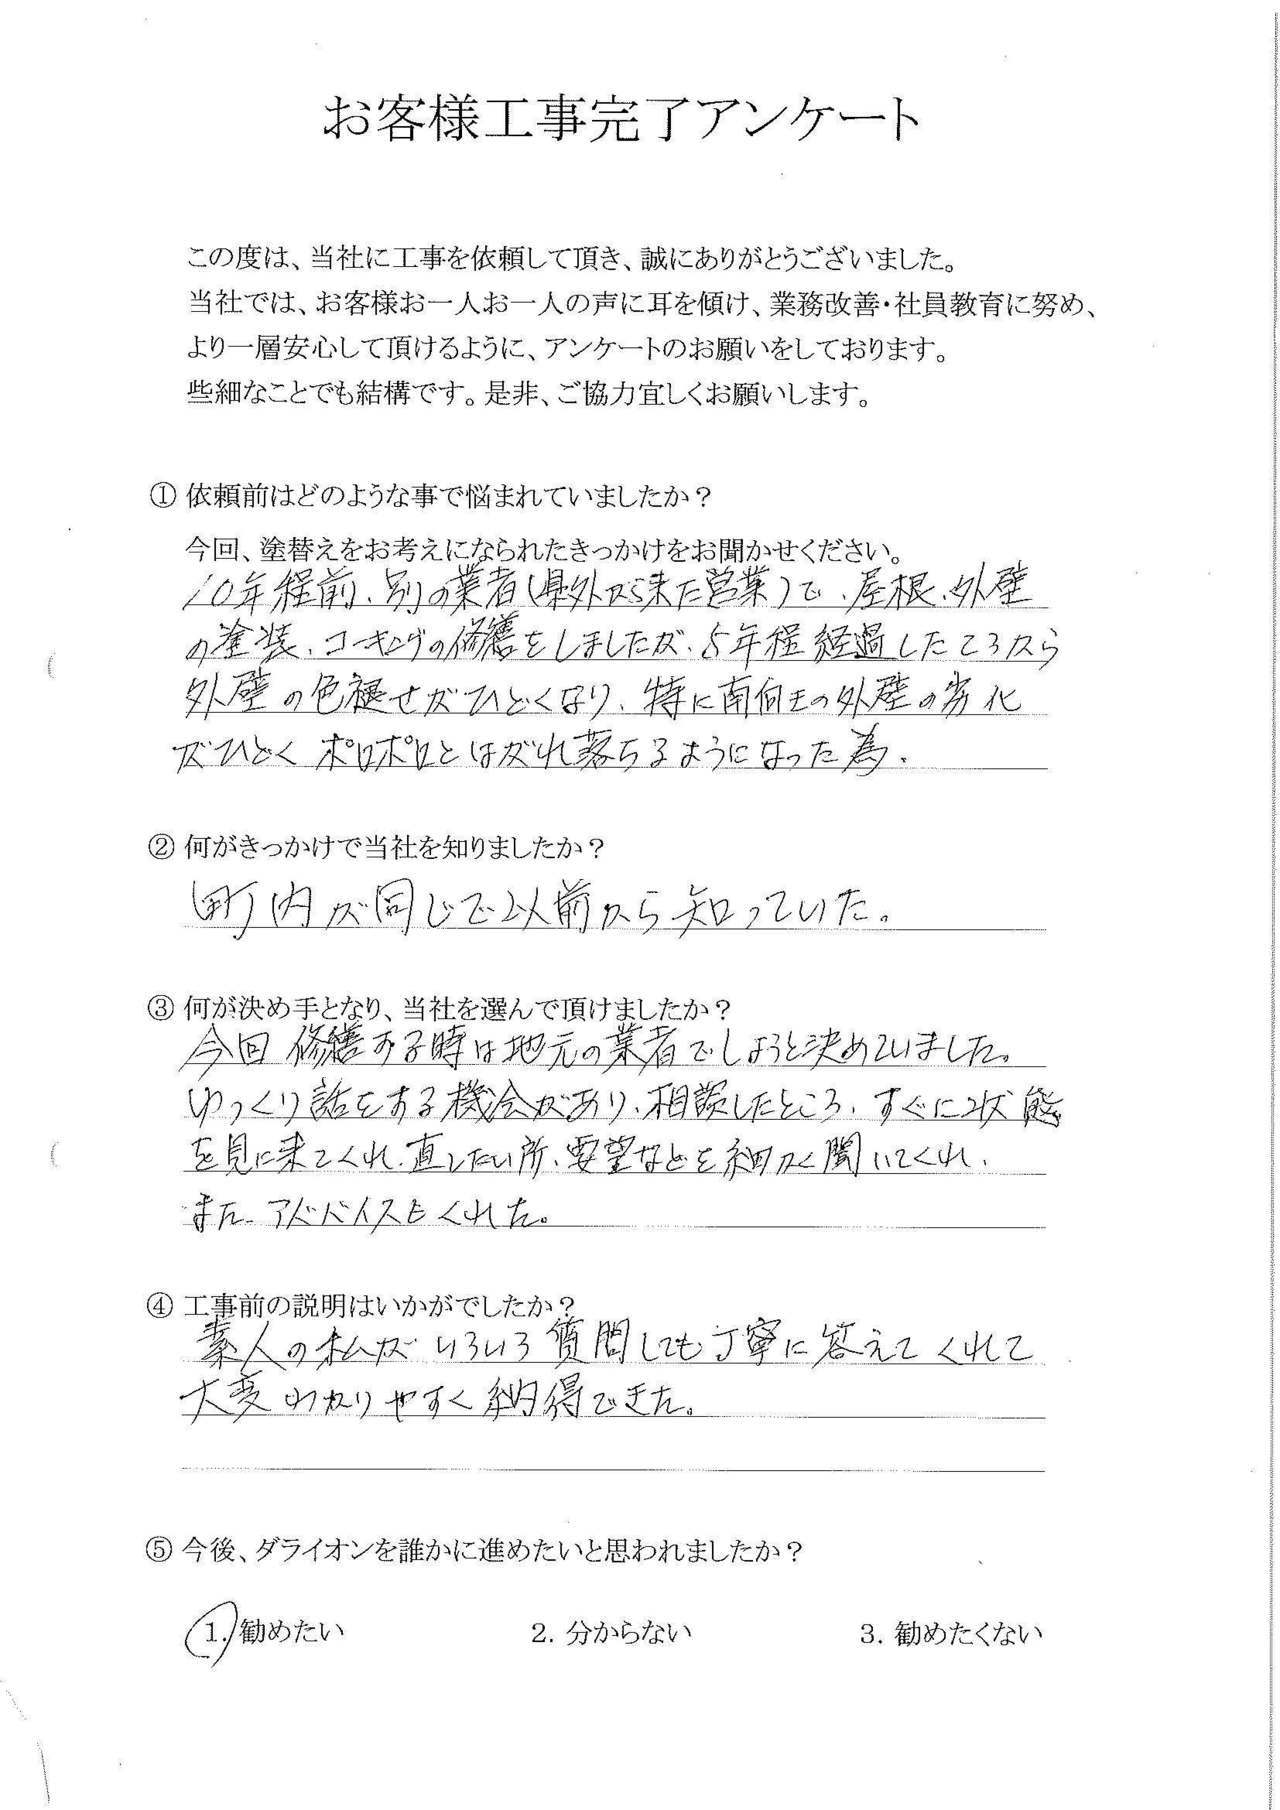 お客様工事完了アンケート
この度は、当社に工事を依頼して頂き、誠にありがとうございました。
当社では、お客様お一人お一人の声に耳を傾け、業務改善・社員教育に努め、
より一層安心して頂けるように、アンケートのお願いをしております。
些細なことでも結構です。是非、ご協力宜しくお願いします。
① 依頼前はどのような事で悩まれていましたか？
今回、塗替えをお考えになられたきっかけをお聞かせください。
10年程前、別の業者(県外から来た営業)で、屋根、外壁
の塗装、コーキングの修繕をしましたが、5年程経過したころから
外壁の色褪せがひどくなり、特に南向きの外壁の劣化
がひどくポロポロとはがれ落ちるようになった為。
② 何がきっかけで当社を知りましたか？
町内が同じで以前から知っていた。
③ 何が決め手となり、当社を選んで頂けましたか？
今回修繕する時は地元の業者でしようと決めていました。
ゆっくり話をする機会があり、相談したところ、すぐに状態
を見に来てくれ、直したい所、要望などを細かく聞いてくれ、
また、アドバイスもくれた。
④ 工事前の説明はいかがでしたか？
素人の私がいろいろ質問しても丁寧に答えてくれて
大変わかりやすく納得できた。
⑤ 今後、ダライオンを誰かに進めたいと思われましたか？
1. 勧めたい 2. 分からない 3. 勧めたくない